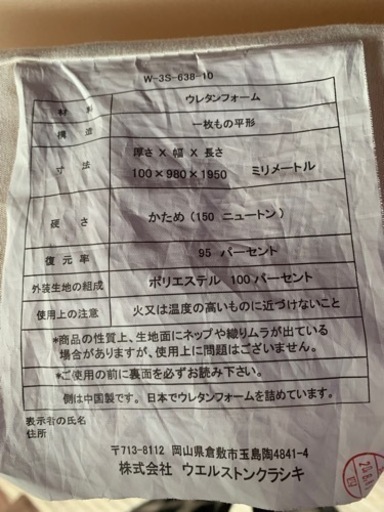 W-3S-638-10
材料 ウレタンフォーム
構造 一枚もの平形
寸法 厚さ × 幅 × 長さ
100×980×1950 ミリメートル
硬さ かため(150 ニュートン)
復元率 95 パーセント
外装生地の組成 ポリエステル 100パーセント
使用上の注意 火又は温度の高いものに近づけないこと
*商品の性質上、生地面にネップや織りムラが出ている
場合がありますが、使用上に問題はございません。
*ご使用の前に裏面を必ずお読み下さい。
側は中国製です。日本でウレタンフォームを詰めています。
表示者の氏名
住所
〒713-8112 岡山県倉敷市玉島陶4841-4
株式会社 ウエルストンクラシキ